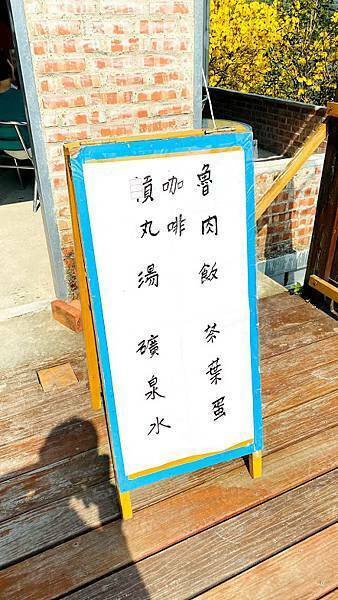 魯肉飯
茶葉蛋
咖啡
貢丸湯
礦泉水